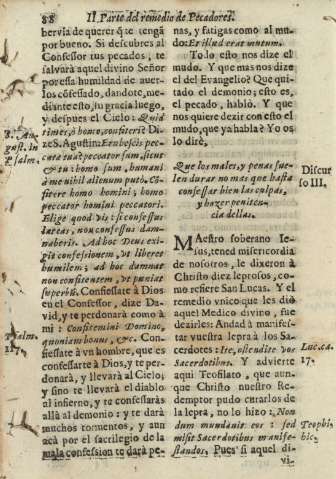 88 II. Parte del remedio de Pecadores.
bervia de querer q̃ te tengã
por bueno. Si descubres al
Confessor tus pecados, te
salvarà aquel divino Señor
por essa humildad de aver-
los cõfessado, dandote, me-
diante esto, su gracia luego,
y despues el Cielo: Quid
times, ò homo, confiteri? Di-
ze S. Agustin: Erubescis pec-
cata tua? peccator sum, sicut
& tu: homo sum, humani
à me nihil alienum puto. Cõ-
fitere homo homini, homo
peccator homini peccatori.
Elige quod vis: si confessus
lateas, non confessus dam-
naberis. Ad hoc Deus exi-
git confessionem, ut liberet
humilem; ad hoc damnat
non confitentem, ut puniat
superbũ. Confessaste à Dios
en el Confessor, dize Da-
vid, y te perdonarà como à
mi: Confitemini Domino,
quoniam bonus, &c. Con-
fiessate à vn hombre, que es
confessarte à Dios, y te per-
donarà, y llevarà al Cielo;
y sino te llevarà el diablo
al infierno, y te confessaràs
allà al demonio: y te darà
muchos tormentos, y aun
acà por el sacrilegio de la
mala confession te darà pe-
S. Au-
gust. in
Psalm.
Psalm.
117.
nas, y fatigas como al mu-
do: Et illud erat mutum.
To lo esto nos dize el
mudo. Y que mas nos dize
el del Evangelio? Que qui-
tado el demonio; esto es,
el pecado, hablò. Y que
nos quiere dezir con esto el
mudo, que ya habla? Yo os
lo dirè,
Que los males, y penas sue-
len durar no mas que hasta
confessar bien las culpas,
y hazer peniten-
cia dellas.
Discur
so III.
MAestro soberano Ie-
sus, tened misericordia
de nosotros, le dixeron à
Christo diez leprosos, co-
mo refiere San Lucas. Y el
remedio vnico que les diò
aquel Medico divino, fue
dezirles: Andad à manifes-
tar vuestra lepra à los Sa-
cerdotes: Ite, ostendite vos
Sacerdotibus. Y advierte
aqui Teofilato, que aun-
que Christo nuestro Re-
demptor pudo curarlos de
la lepra, no lo hizo: Non
dum mundavit eos: sed
misit Sacerdotibus manifes-
tandos. Pues si aquel di-
vi-
Luc. ca.
17.
Teophi-
hic.